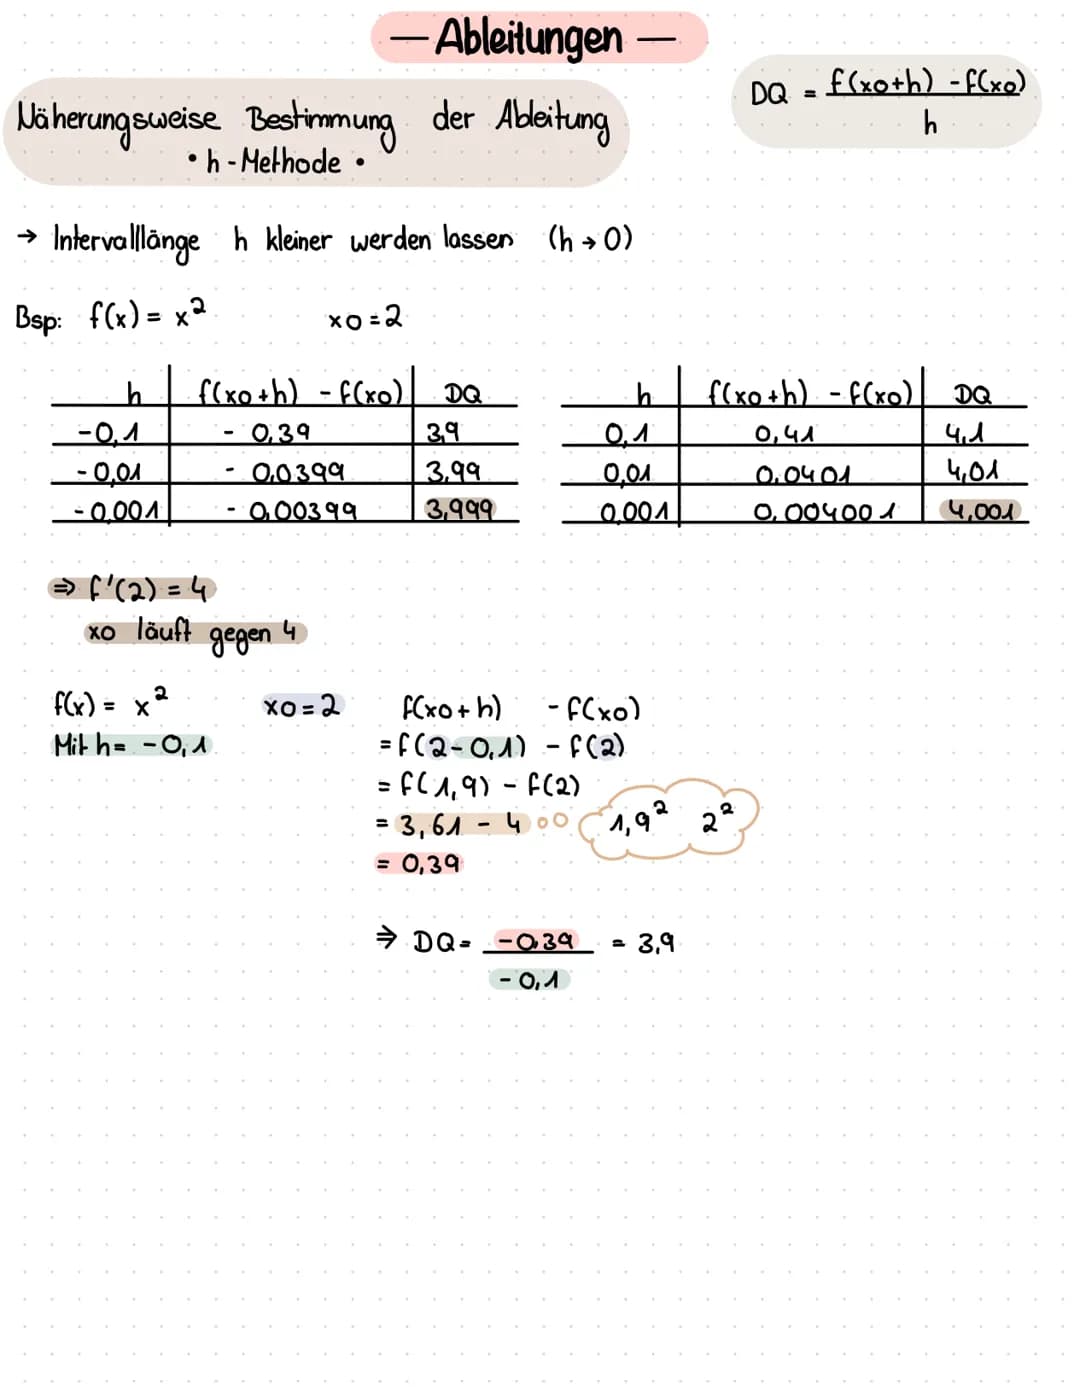 — Ableitungen —
DQ = f(xo+h) - f(xo)
h
Näherungsweise Bestimmung der Ableitung
• h - Methode •
→ Intervalllänge h kleiner werden lassen (h → 0)
Bsp: f(x) = x² xo = 2
h f(xo+h) - f(xo) DQ
-0,1 - 0,39 3,9
-0,01 - 0,0399 3,99
-0,001 - 0,00399 3,999
h f(xo+h) - f(xo) DQ
0,1 0,41 4,1
0,01 0,0401 4,01
0,001 0,004001 4,001
⇒ f'(2) = 4
xo läuft gegen 4
f(x) = x² xo = 2 f(xo+h) - f(xo)
Mit h = -0,1 = f(2-0,1) - f(2)
= f(1,9) - f(2)
= 3,61 - 4 1,9² 2²
= 0,39
⇒ DQ = -0,39 = 3,9
-0,1